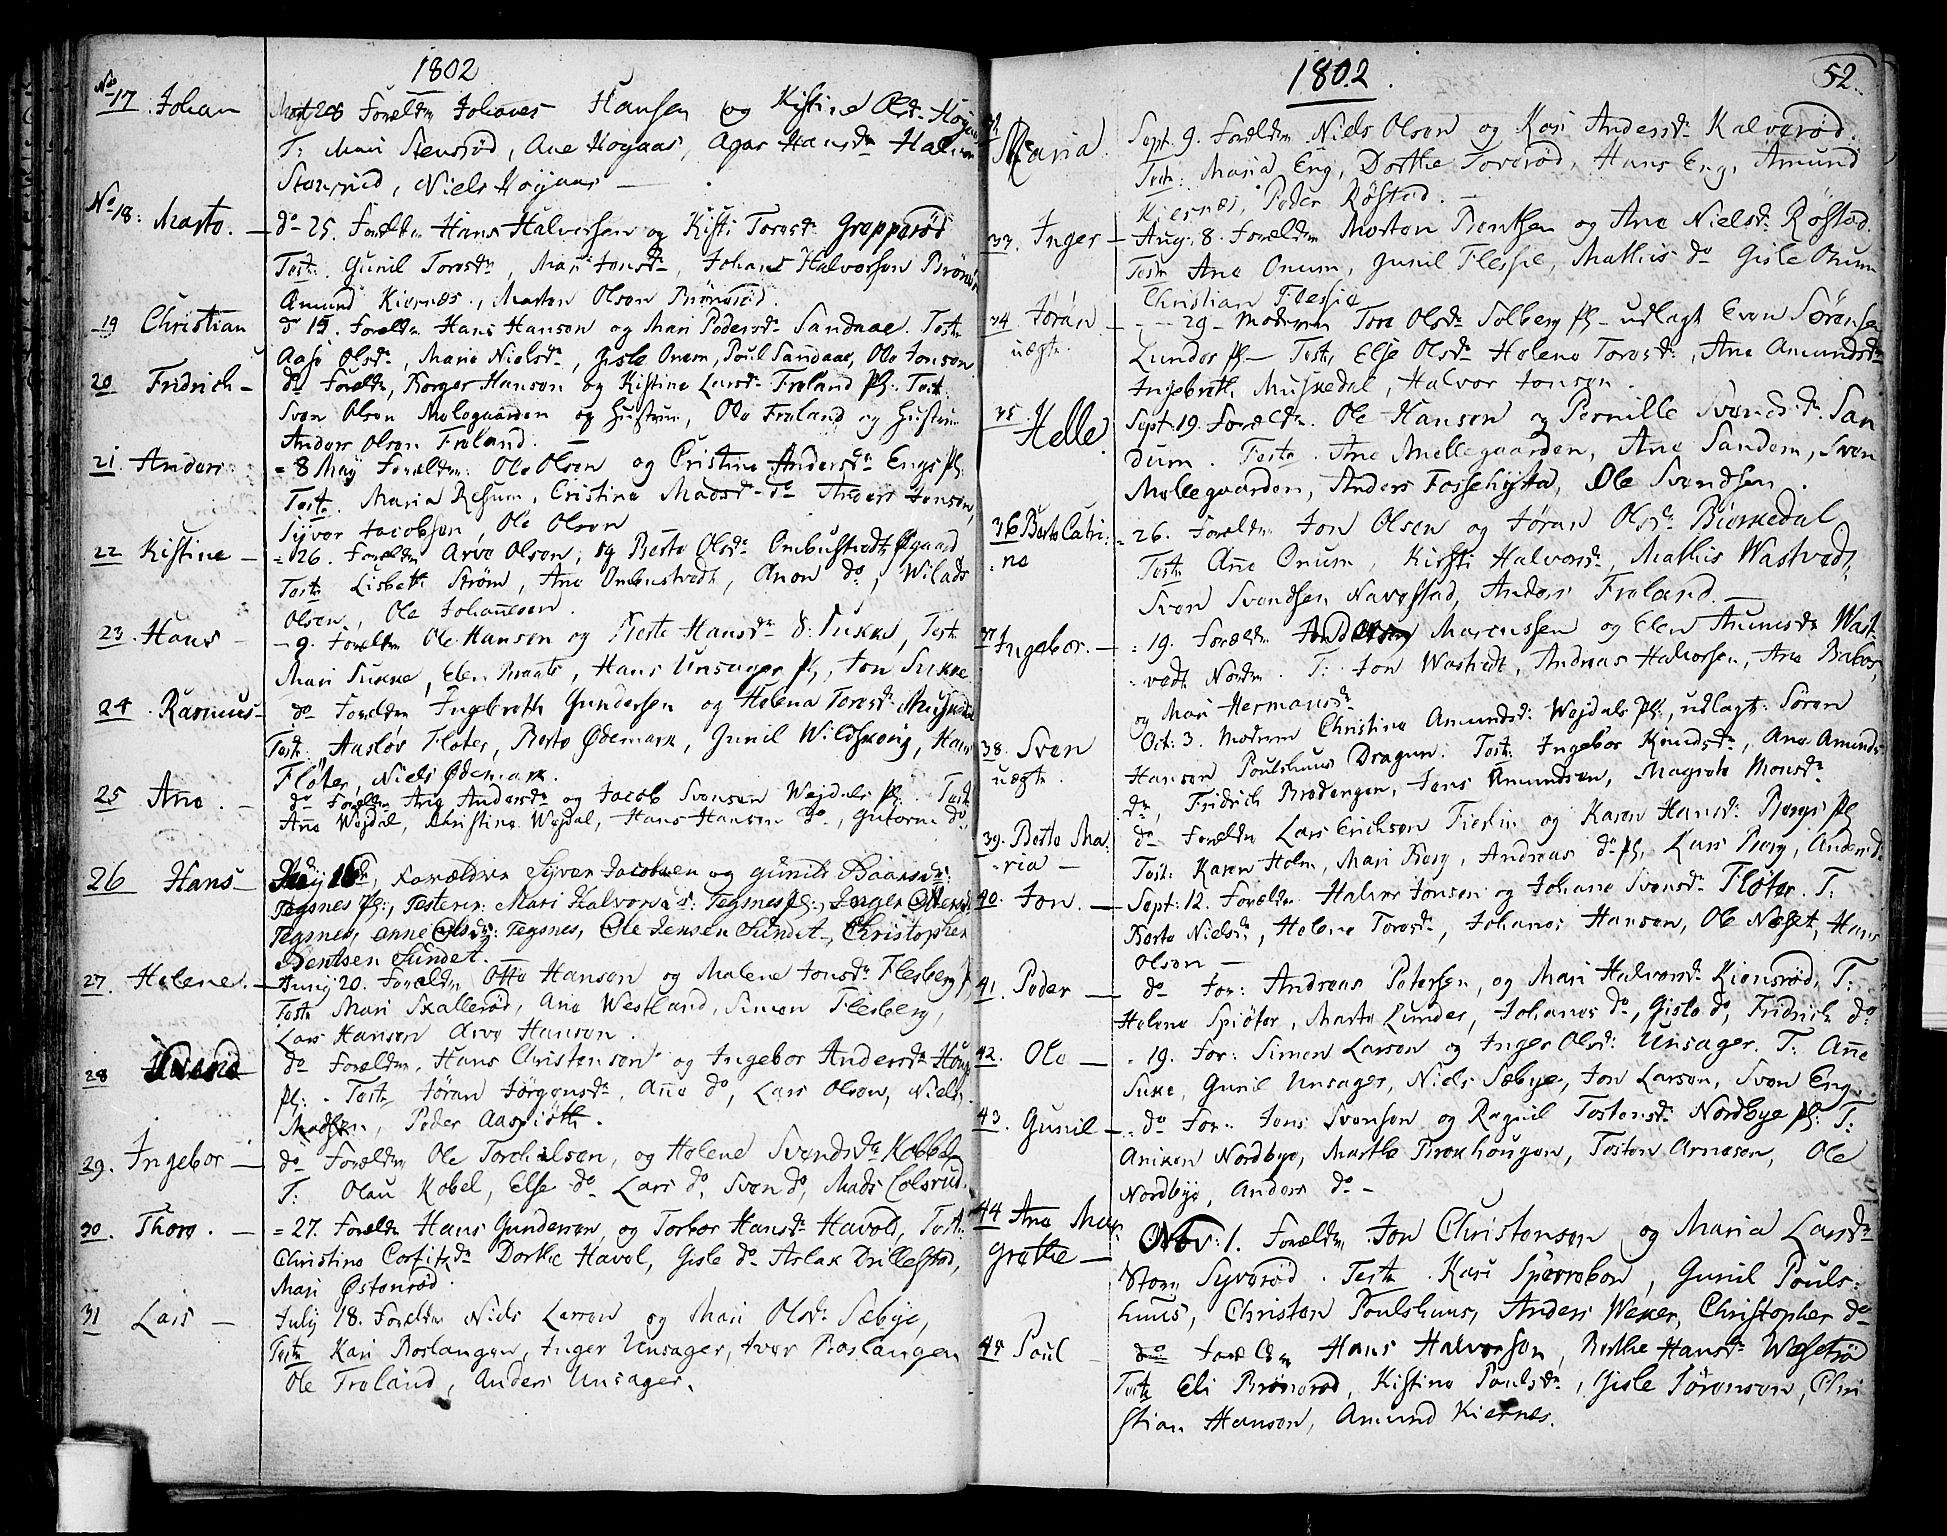 1802
No 17. Johan Mart. 28 Forældre Johanes Hansen og Kistine Olsdr Høgaas
T: Mari Stensrød, Ane Høgaas, Agar Hansdr Halvor
Stensrud, Niels Høgaas —
No 18: Marte. — do 25. Forældre Hans Halvorsen og Kisti Toresdr Gropperød
Test: Gunil Toresdr, Mari Jonsdr, Johans Halvorsen Brønerød
Amund Kiernæs., Morten Olsen Brønerød.
19 Christian do 15. Forældre Hans Hanson og Mari Pedersdr Sandaae. Testr
Aase Olsdr, Marie Nielsdr, Gisle Onum, Poul Sandaae, Ole Jonson
20 Fridrich — do Forældre, Borger Hanson og Kistine Larsdr Froland pl. Test:
Sven Olsen Mølegaarden og Hustrue, Ole Froland og Hustrue
Anders Olsen Froland. —
21. Anders = 8 May Forældre: Ole Olsen og Cristine Andersdr Engs pl:
Testr. Maria Resum, Cristine Madsdr do Anders Jonson,
Syver Jacobsen, Ole Olsen
22 Kistine — = 26. Forældre Arve Olsen, og Berte Olsdr Ombustvedt Øgaard
Testr Lisbeth Strøm, Ane Ombustvedt, Anon do, Wilads
Olsen, Ole Johannesen.
23. Hans — - 9. Forældre Ole Hanson og Berte Hansdr Sukke, Testr
Mari Sukke, Elen Braate, Hans Unsager pl, Jon Sukke
24 . Rasmus — do Forældre Ingebreth Gundersen og Helena Toresdr Muskedal
Testr. Aasløv Fløter, Berte Ødemark, Gunil Wildskoug, Hans
Fløter, Niels Ødemark.
25 Ane. — do Forældre Ane Andersdr og Jacob Svensen Wejdals pl. Testr
Ane Wejdal, Christine Wejdal, Hans Hansen do, Gutorm do.
26 Hans — May 16de, Forældrene Syver Jacobsen og Gunild Baarsdr:
Tegsnes pl:, Testerer: Mari Halvorsdr: Tegsnes pl:, Inger Olsens
Tegsnes, Anne Olsdr: Tegsnes, Ole Jensen Sundet, Christopher
Bentsen Sundet. —
27. Helene. — Juny 20. Forældre Otto Hanson og Malene Jonsdr Flesberg pl
Testr Mari Skallerød, Ane Westland, Simon Flesberg,
Lars Hanson Arve Hanson.
28 do Forældre, Hans Christensen og Ingebor Andersdr Houg
pl: . Testr Jøran Jørgensdr, Ane do, Lars Olson, Niels
Madsen, Peder Aaspiøth.
29. Ingebor — do Forældre Ole Torchilsen, og Helene Svendsdr Kobbel
T: Olau Kobel, Else do Lars do, Sven do, Mads Colsrud.
30. Thore. — = 27. Forældre Hans Gundersen, og Torbor Hansdr Havold, Testr:
Christine Corfitzdr Dorthe Havol, Gisle do Aslak Drillestad,
Mari Østenrød.
31 Lars — July 18. Forældre Niels Larson og Mari Olsdr Sæbye,
Testr Kari Boslangen, Inger Unsager, Iver Boslangen
Ole Froland, Anders Unsager.
1802. 52.
32 Maria. Sept. 9. Forældre Niels Olsen og Kari Andersdr Kalverød.
Testr: Maria Eng, Dorthe Toverød, Hans Eng, Amund
Kiernæs, Peder Røstad. —
33. Inger — Aug: 8. Forældre Morten Bentsen og Ane Nielsdr Røstad.
Testr Ane Onum, Gunil Flessie, Mathis do Gisle Onum
Christian Flessie
34 Jøran — uægte. - - 29 - Moderen Tore Olsdr Solberg pl - udlagt Even Sørensen
Lunder pl — Testr Else Olsdr Helene Toresdr, Ane Amundsdr
Ingebreth Muskedal, Halvor Jonson.
35. Helle. Sept. 19. Forældre. Ole Hanson og Pernille Svendsdr San
dum. Teste. Ane Møllegaarden, Ane Sandem, Sven
Møllegaarden, Anders Fossehytta, Ole Svendsen.
36 Berte Catri:
ne = 26. Forældre Jon Olsen og Jøran Olsdr Biørkedal
Testr Ane Onum, Kirsti Halvorsdr, Mathis Wastvedt,
Sven Svendsen Navestad, Anders Froland. —
37 Ingebor. — = 19. Forældre Marcussen og Elen Aunesdr Wast-
vedt Nordre. T: Jon Wastvedt, Andreas Halvorsen, Ane Baker,
og Mari Hermansdr
38. Sven uægte. Oct: 3. Moderen Christine Amundsdr Wejdals pl:, udlagt: Søren
Hanson Poulshuus Dragun. Testr: Ingebor Knudsdr, Ane Amunds-
dr, Fridrich Brødengen, Jens Amundsen, Magrete Monsdr
39. Berte Ma:
ria — do Forældre Lars Erichson og Karen Hansdr Bergs pl
Testr Karen Holm, Mari Berg, Andreas do pl, Lars Berg, Anders do
40. Jon. — Sept: 12. Forældre Halvor Jonson og Johane Svensdr Fløter. T:
Berte Nielsdr, Helene Toresdr, Johanes Hanson, Ole Næset, Hans
Olson —
41. Peder — do For: Andreas Petersen, og Mari Halvorsdr Kionsrød, T:
Helene Spiøter, Marte Lunder, Johanes do, Gisle do, Fridrich do
42. Ole — = 19. For: Simon Larson og Inger Olsdr Unsager. T: Ane
Sukke, Gunil Unsager, Niels Sæbye, Jon Larson, Sven Eng.
43. Gunil — = do For: Jens Svenson og Ragnil Tostensdr Nordbye pl: T:
Aniken Nordbye, Marthe Brekhougen, Tosten Arneson, Ole
Nordbye, Anders do —
44 Ane Mar-
grethe — Nov: 1. Forældre Jon Christenson og Maria Larsdr
Store Syverød. Testr Kari Spærrebøn, Gunil Pouls:
huus, Christen Poulshuus, Anders Weker, Christopher do —
45 Poul — do Forældre Hans Halvorson, Berthe Hansdr Wæsetrø
Testr Eli Brønerød, Kistine Poulsdr, Gisle Sørenson, Chri
stian Hanson, Amund Kiernes.